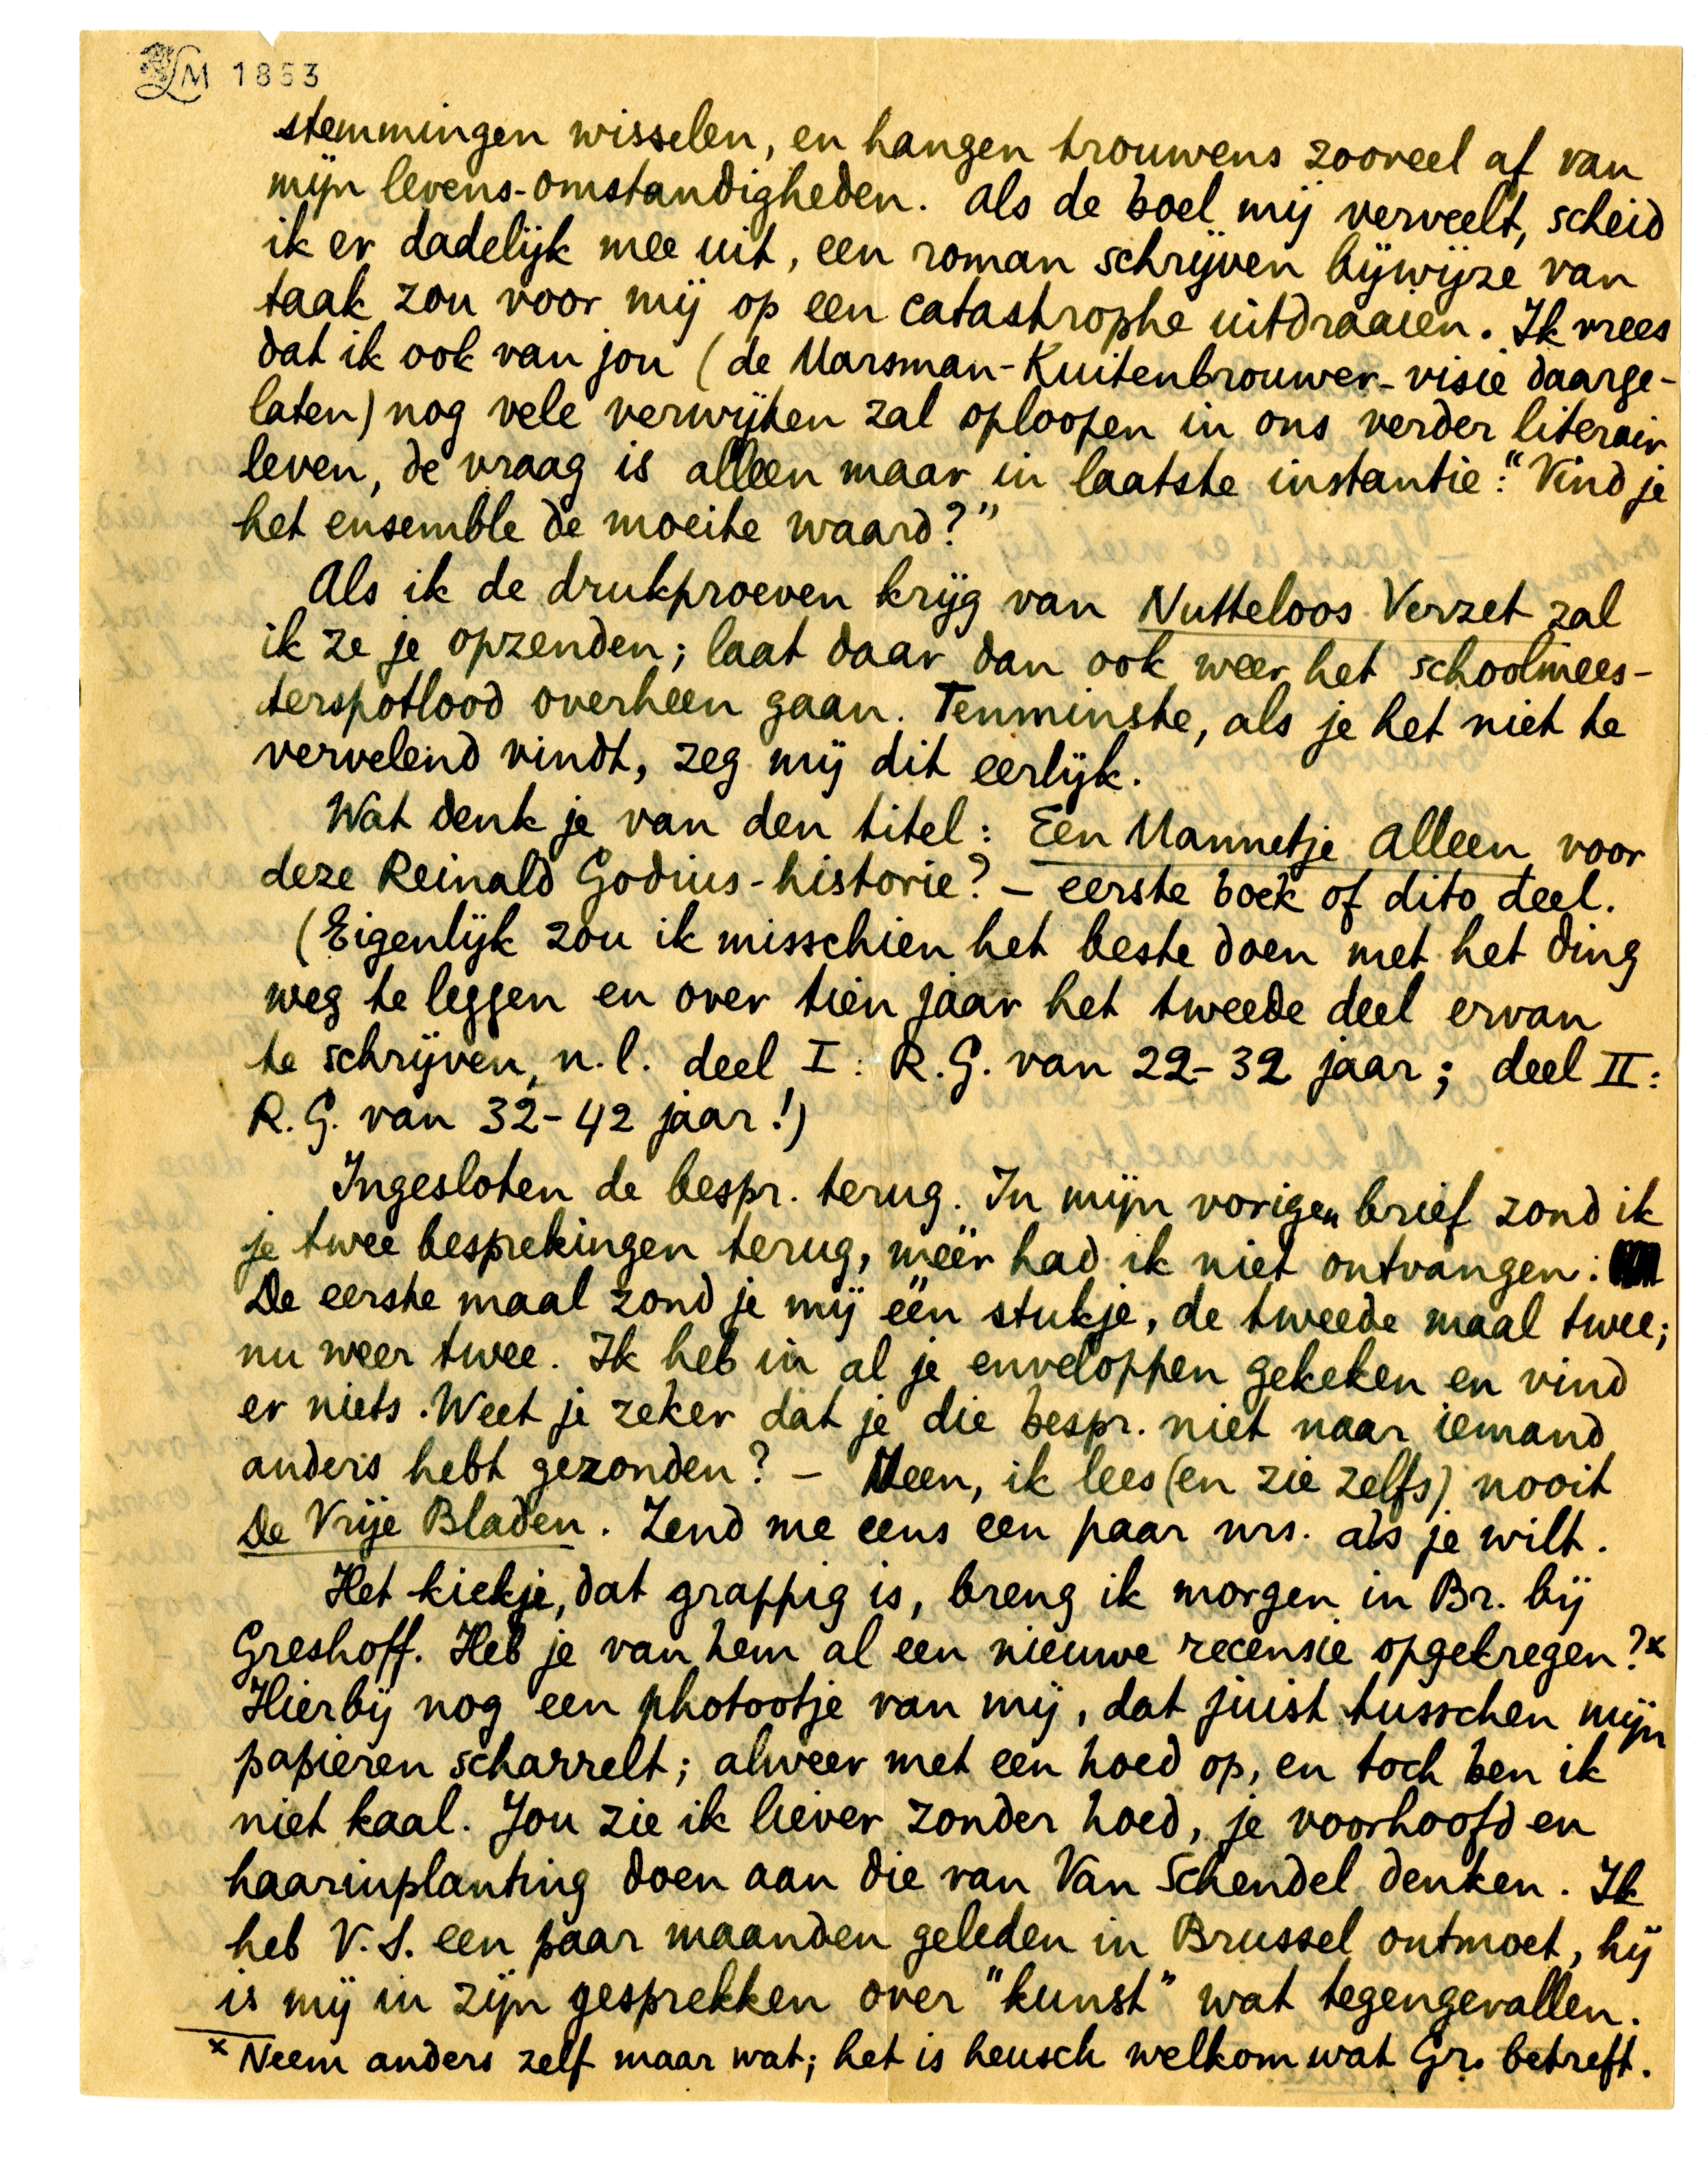 LM 1853
stemmingen wisselen, en hangen trouwens zooveel af van
mijn levens-omstandigheden. Als de boel mij verveelt, scheid
ik er dadelijk mee uit, een roman schrijven bijwijze van
taak zou voor mij op een catastrophe uitdraaien. Ik vrees
dat ik ook van jou (de Marsman-Kuitenbrouwer-visie daarge-
laten) nog vele verwijten zal oploopen in ons verder literair
leven, de vraag is alleen maar in laatste instantie: "Vind je
het ensemble de moeite waard?"
Als ik de drukproeven krijg van Nutteloos Verzet zal
ik ze je opzenden; laat daar dan ook weer het schoolmees-
terspotlood overheen gaan. Tenminste, als je het niet te
vervelend vindt, zeg mij dit eerlijk.
Wat denk je van den titel: Een Mannetje Alleen voor
deze Reinald Godius-historie? – eerste boek of dito deel.
(Eigenlijk zou ik misschien het beste doen met het ding
weg te leggen en over tien jaar het tweede deel ervan
te schrijven, n.l. deel I: R.G. van 22-32 jaar; deel II:
R.G. van 32-42 jaar!)
Ingesloten de bespr. terug. In mijn vorigen brief zond ik
je twee besprekingen terug, méér had ik niet ontvangen:
De eerste maal zond je mij één stukje, de tweede maal twee;
nu weer twee. Ik heb in al je enveloppen gekeken en vind
er niets. Weet je zeker dat je die bespr. niet naar iemand
anders hebt gezonden? – Neen, ik lees (en zie zelfs) nooit
De Vrije Bladen. Zend me eens een paar nrs. als je wilt.
Het kiekje, dat grappig is, breng ik morgen in Br. bij
Greshoff. Heb je van hem al een nieuwe recensie opgekregen?×
Hierbij nog een photootje van mij, dat juist tusschen mijn
papieren scharrelt; alweer met een hoed op, en toch ben ik
niet kaal. Jou zie ik liever zonder hoed, je voorhoofd en
haarinplanting doen aan die van Van Schendel denken. Ik
heb V.S. een paar maanden geleden in Brussel ontmoet, hij
is mij in zijn gesprekken over "kunst" wat tegengevallen.
× Neem anders zelf maar wat; het is heusch welkom wat Gr. betreft.